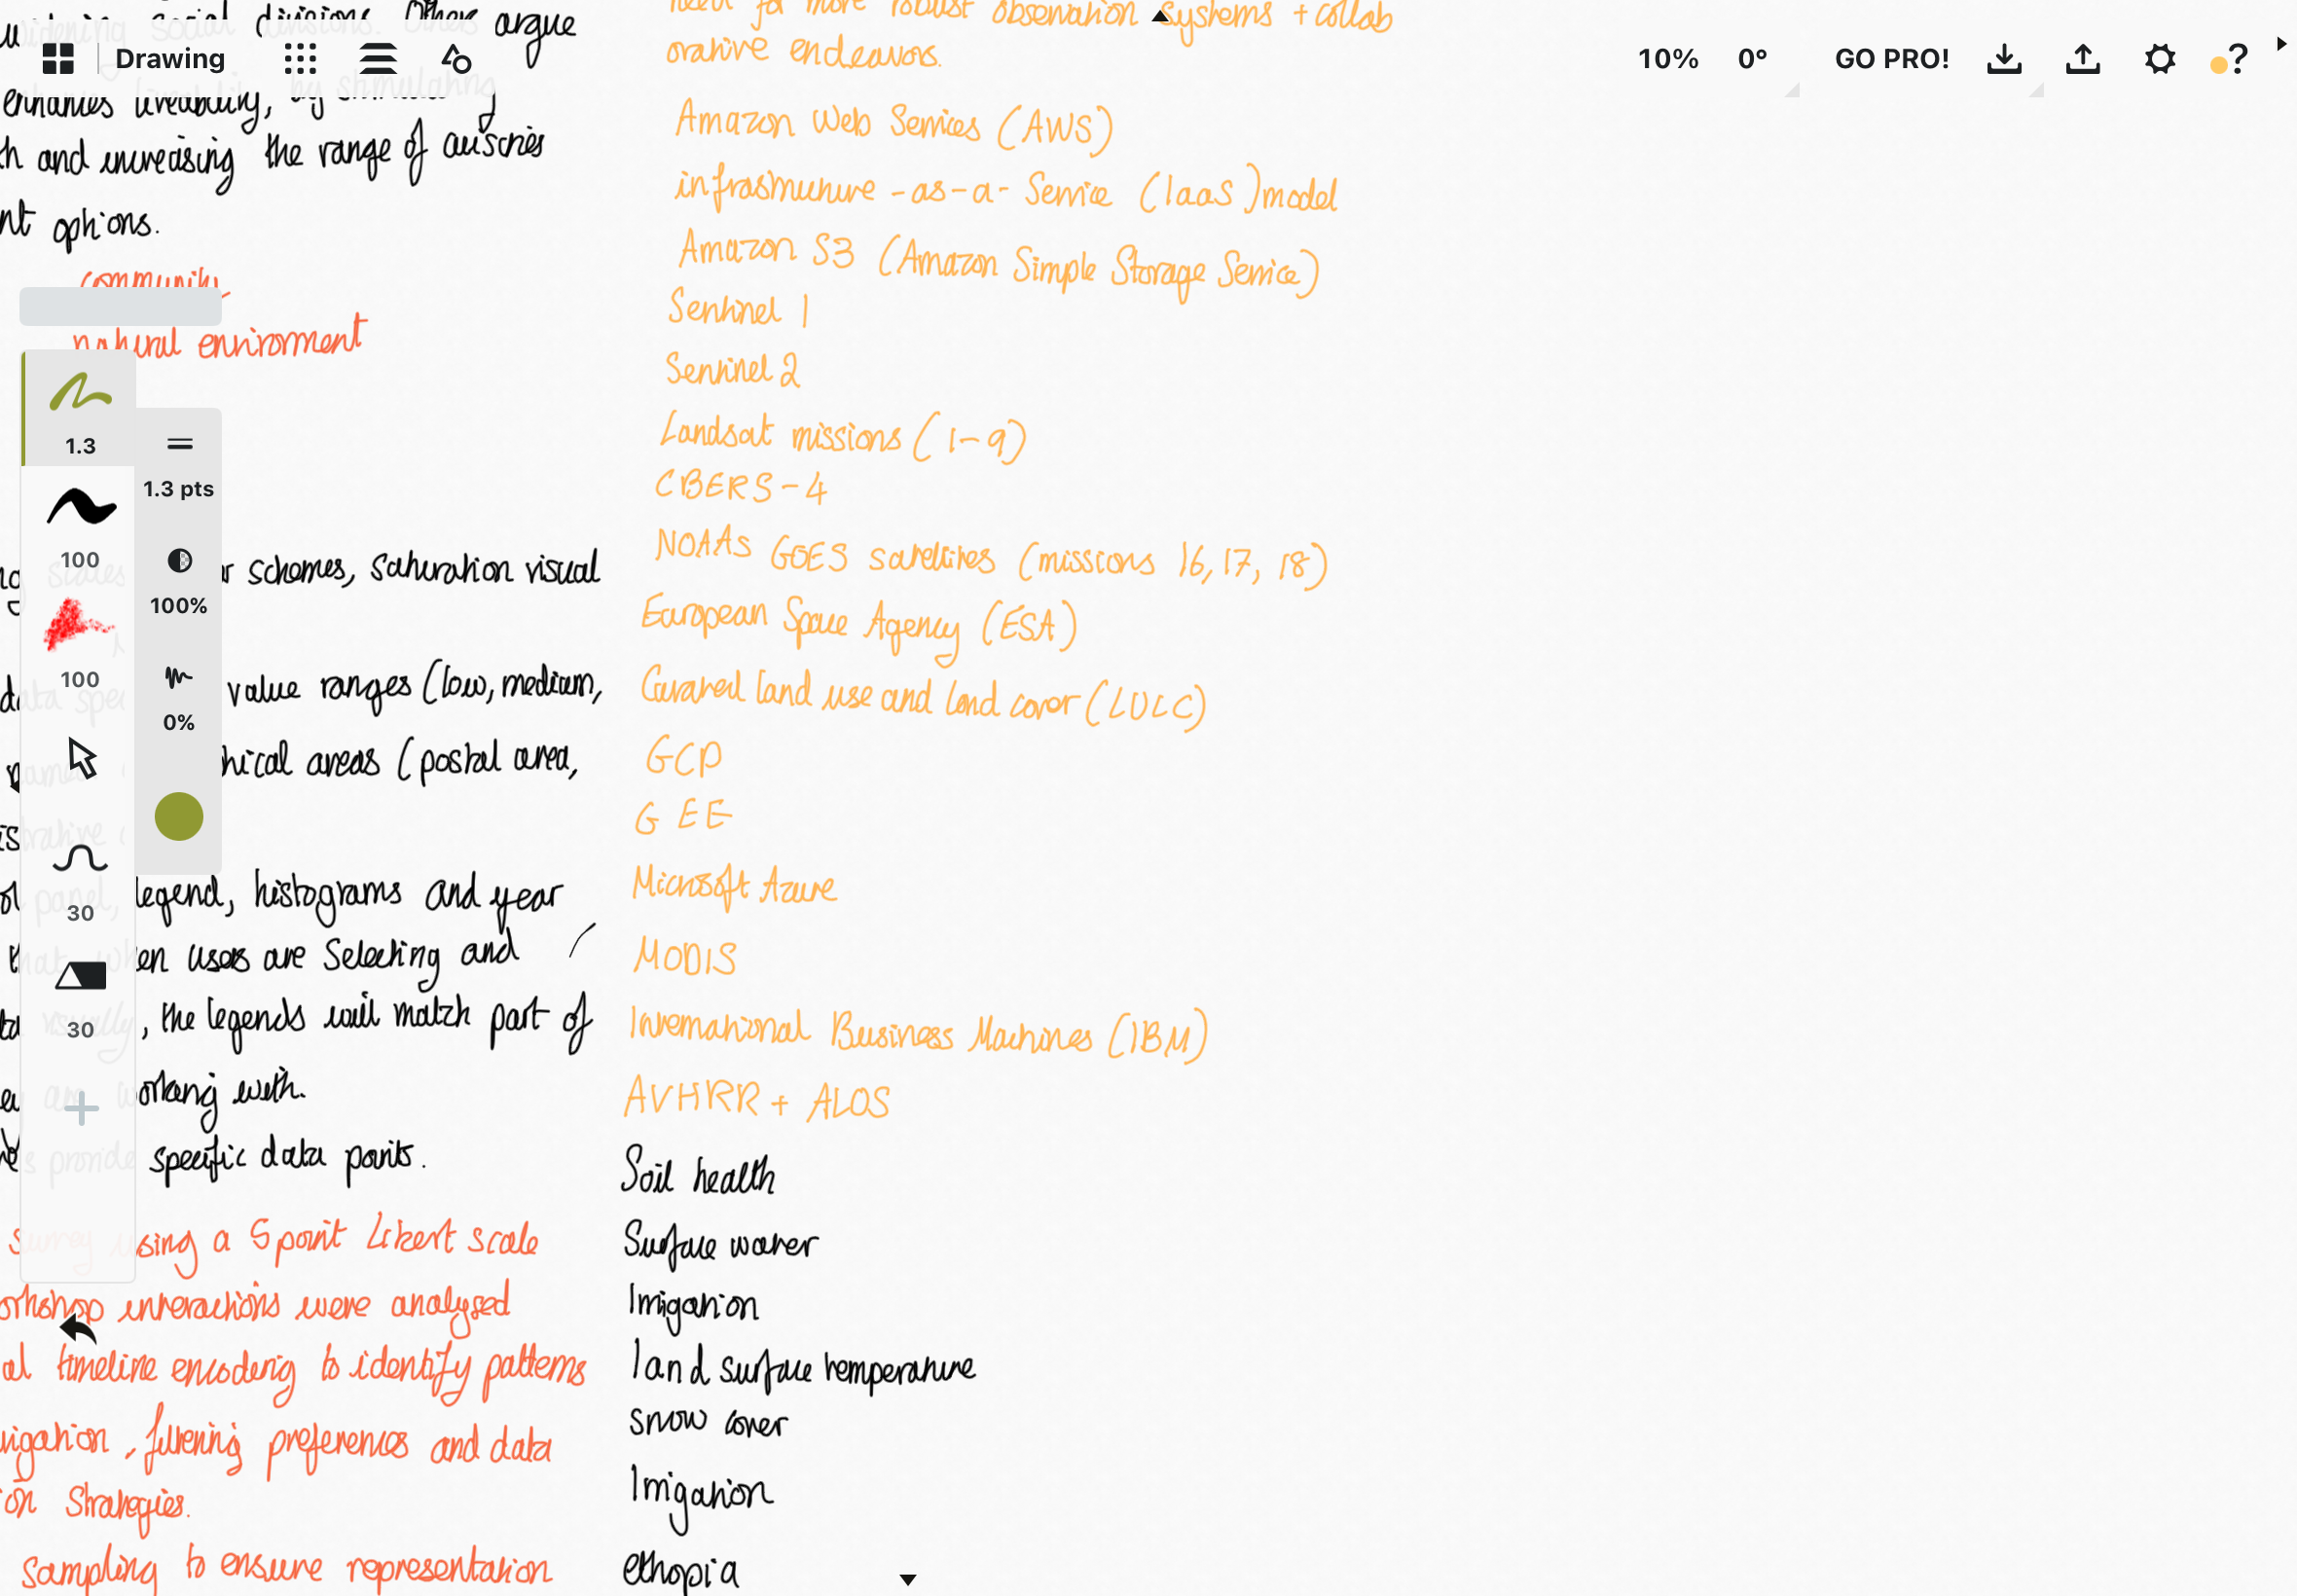 Drawing
10%
0°
GO PRO!
?
widening social divisions. Others argue
enhances liveability, by stimulating
th and increasing the range of
nt options.
community
natural environment
schemes, saturation visual
value ranges (low, medium,
hical areas (postal area,
panel, legend, histograms and year
that when users are selecting and
visually, the legends will match part of
are working with.
provide specific data points.
survey using a 5 point Likert scale
workshop interactions were analysed
al timeline encoding to identify patterns
vigation, filtering preferences and data
ion Strategies.
Sampling to ensure representation
1.3
100
100
30
30
1.3 pts
100%
0%
need for more robust observation systems + collab
orative endeavors.
Amazon Web Services (AWS)
infrastructure-as-a-Service (IaaS) model
Amazon S3 (Amazon Simple Storage Service)
Sentinel 1
Sentinel 2
Landsat missions (1-9)
CBERS-4
NOAAs GOES satellites (missions 16, 17, 18)
European Space Agency (ESA)
Curated land use and land cover (LULC)
GCP
GEE
Microsoft Azure
MODIS
International Business Machines (IBM)
AVHRR + ALOS
Soil health
Surface water
Irrigation
land surface temperature
snow cover
Irrigation
ethopia